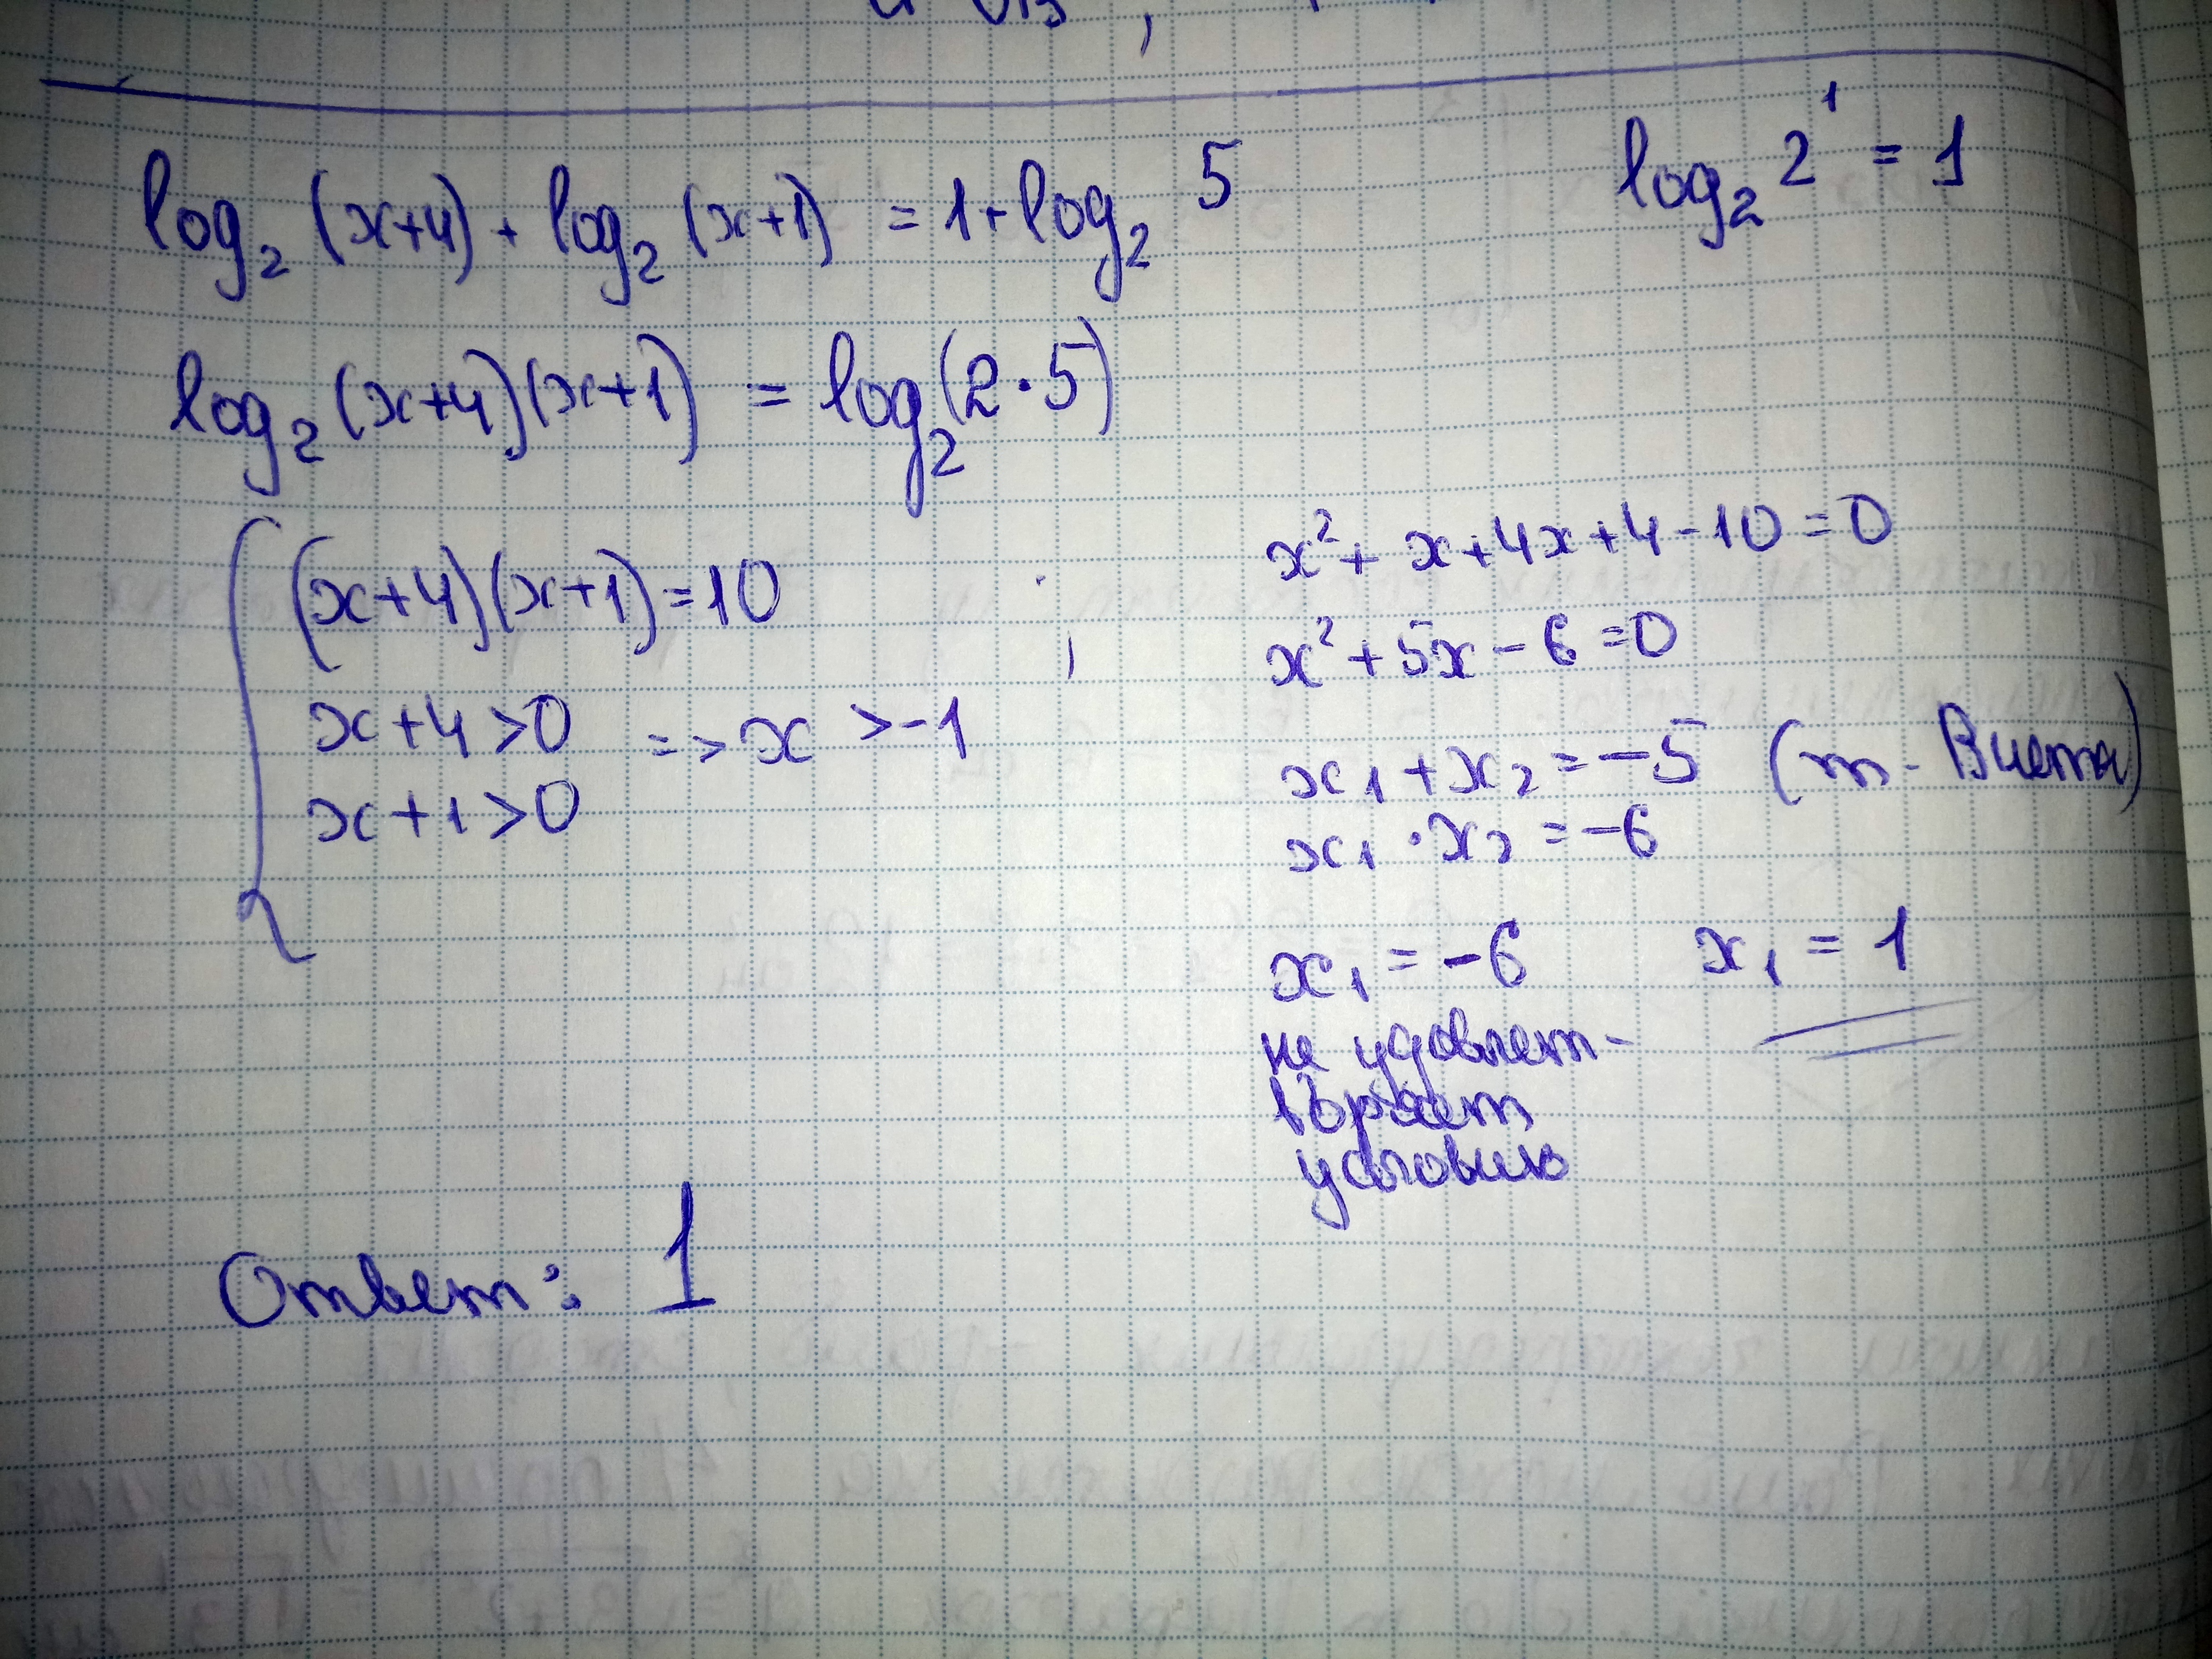 log₂(x+4) + log₂(x+1) = 1 + log₂ 5
log₂ 2¹ = 1
log₂(x+4)(x+1) = log₂(2·5)
(x+4)(x+1)=10
x+4>0 => x > -1
x+1>0
;
x² + x+4x+4-10=0
x²+5x-6=0
x₁+x₂=-5 (т. Виета)
x₁·x₂=-6
x₁=-6 x₁=1
не удовлет-
воряет
условию
Ответ: 1